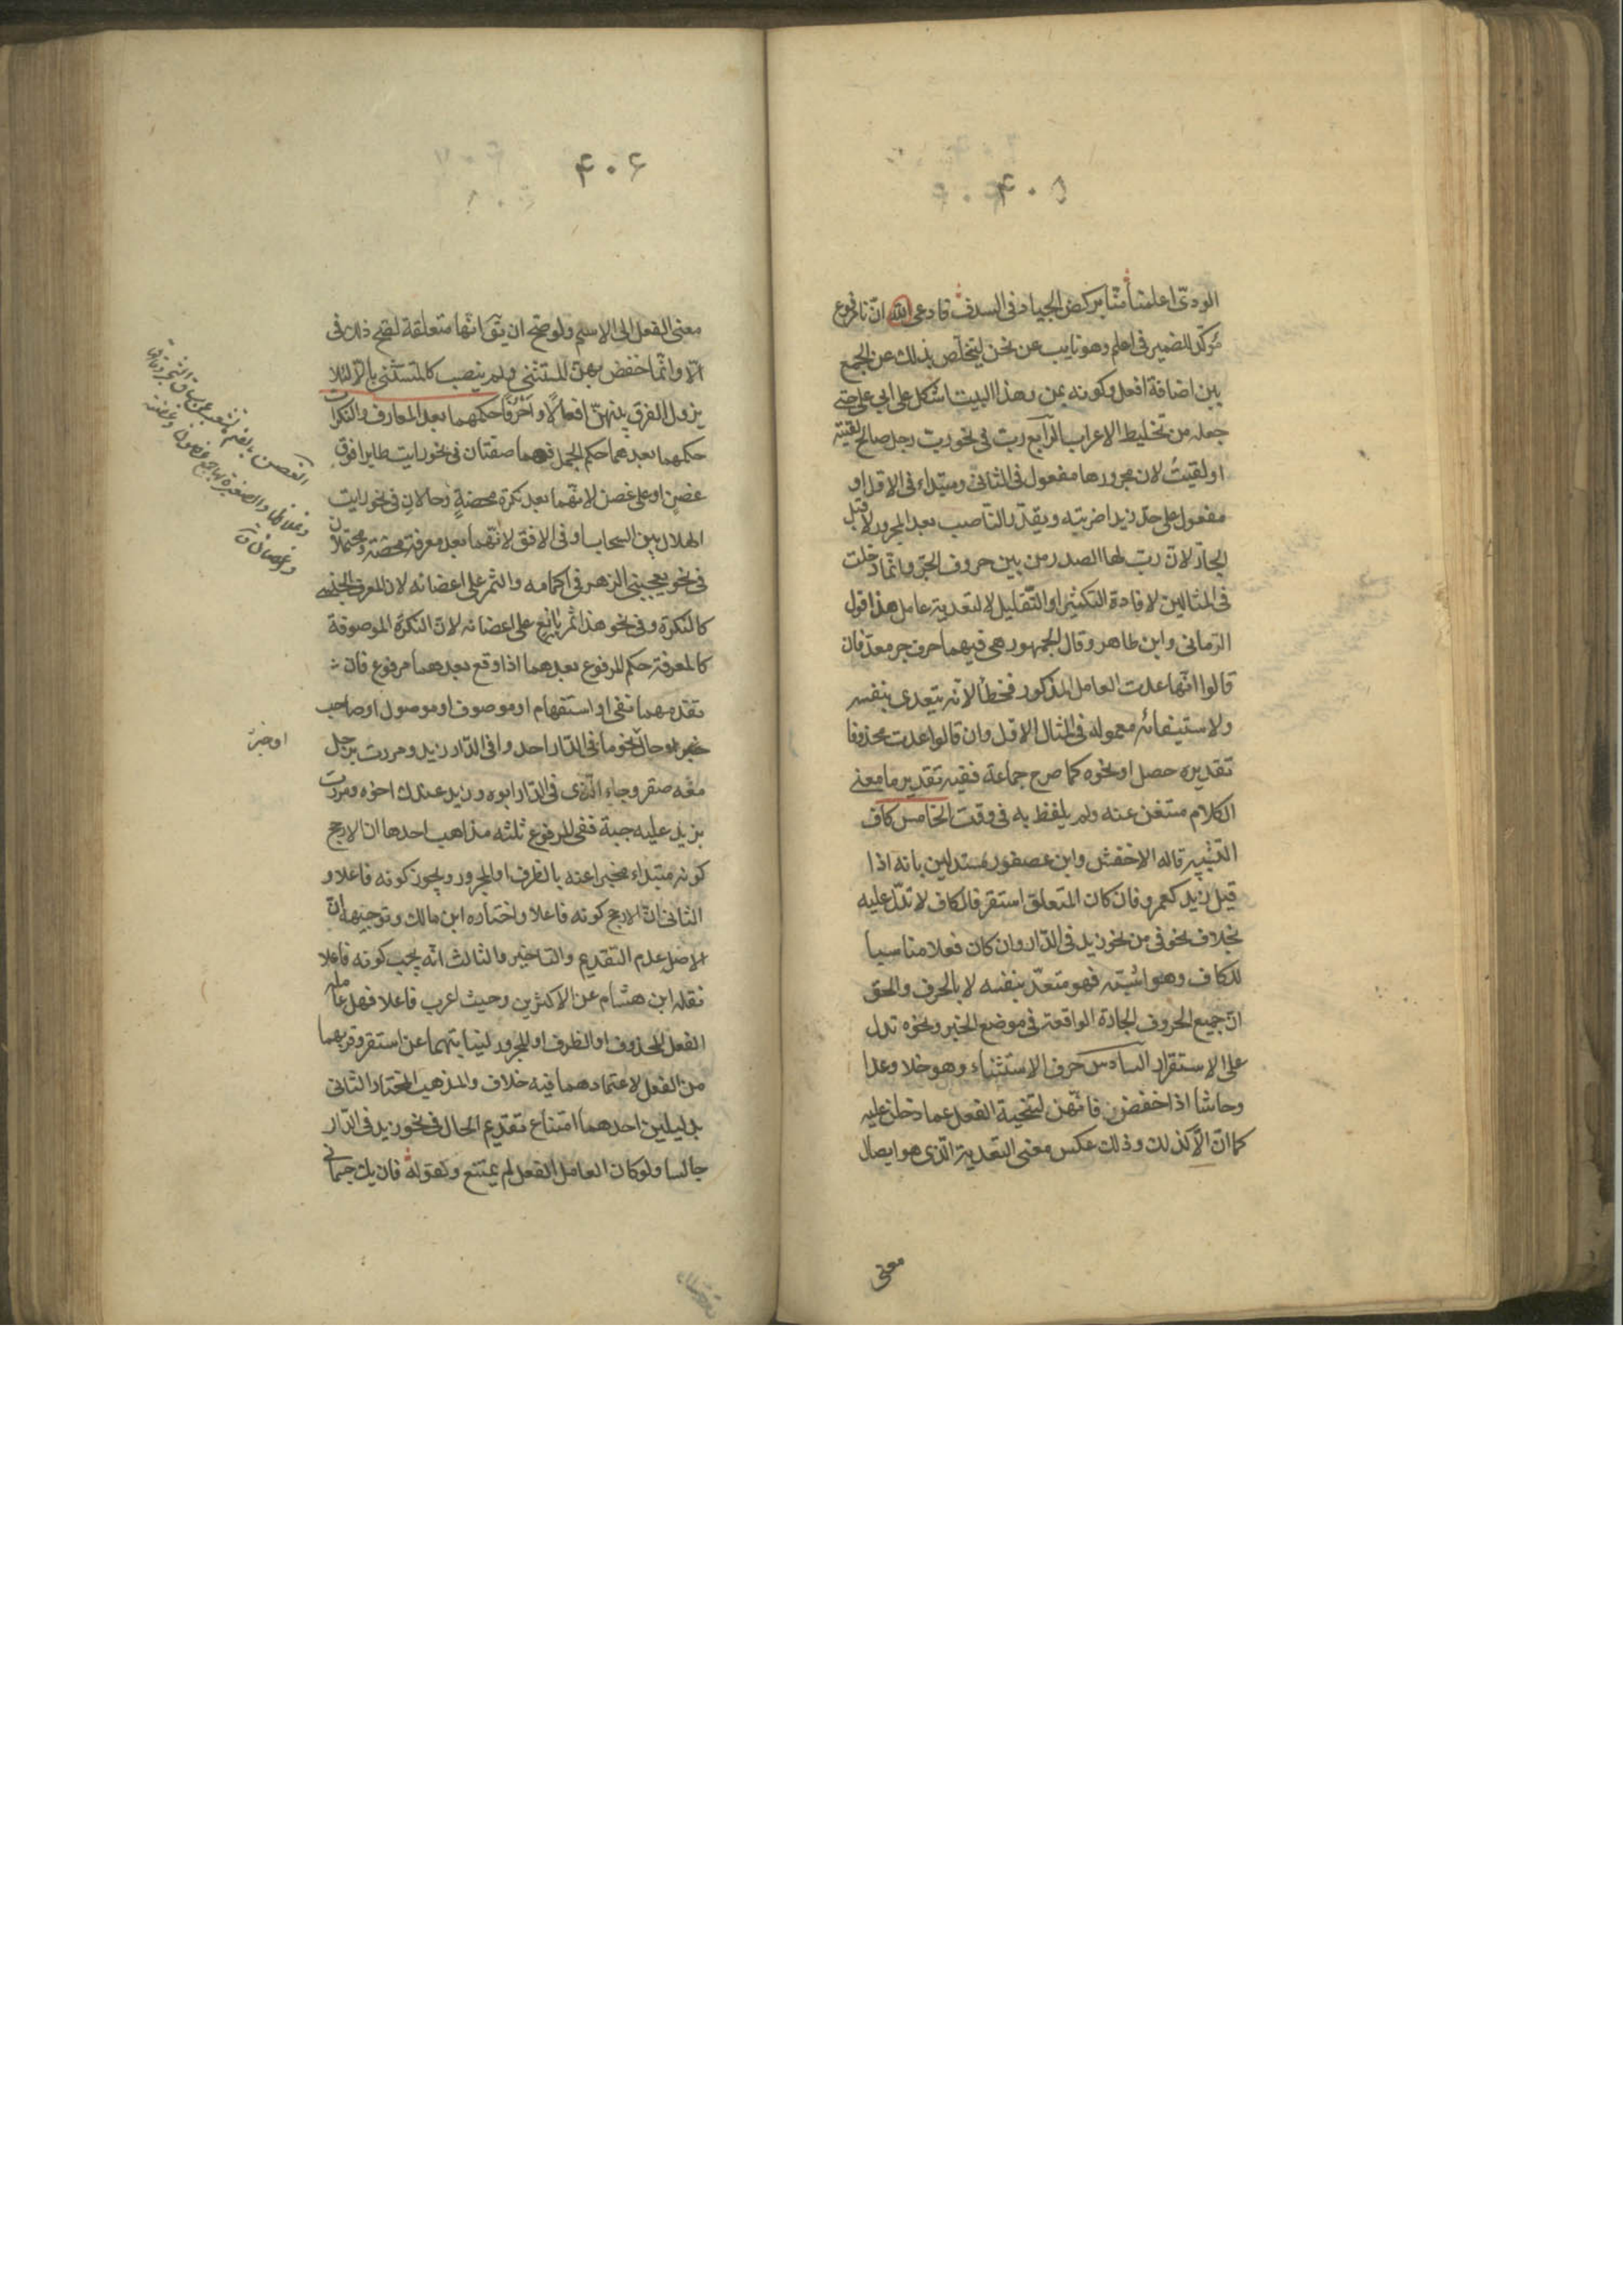 ٤٠٥
الودىّ اعلمنا منّا بركض الجياد فى السدف قادعى الله انّ نا مرفوع
مؤكّد للضمير فى اعلم وهو نايب عن نحن ليتخلّص بذلك عن الجمع
بين اضافة افعل وكونه بمن وهذا البيت اشكل على ابى على حتى
جعله من تخليط الاعراب الرّابع ربّ فى نحو ربّ رجل صالح لقيته
او لقيتُ لان مجرورها مفعول فى الثانى ومبتداء فى الاوّل او
مفعول على حدّ زيدا ضربته ويقدّر الناصب بعد المجرور لا قبل
الجارّ لانّ ربّ لها الصدر من بين حروف الجرّ وانّما دخلت
فى المثالين لافادة التكثير او التّقليل لا لتعدية عامل هذا قول
الرّمانى وابن طاهر وقال الجمهور هى فيهما حرف جر معدّ فان
قالوا انّها عدت العامل المذكور فخطأ لانّه يتعدى بنفسه
ولاستيفائه معموله فى المثال الاوّل وان قالوا عدت محذوفا
تقديره حصل او نحوه كما صرح جماعة ففيه تقدير ما معنى
الكلام مستغن عنه ولم يلفظ به فى وقت الخامس كاف
التشبيه قاله الاخفش وابن عصفور مستدلين بانه اذا
قيل زيد كعمرو فان كان المتعلق استقر فالكاف لا تدلّ عليه
بخلاف نحو فى من نحو زيد فى الدّار وان كان فعلا مناسبا
للكاف وهو اشبّه فهو متعدّ بنفسه لا بالحرف والحق
انّ جميع الحروف الجارة الواقعة فى موضع الخبر ونحوه تدل
على الاستقرار السّادس حرف الاستثناء وهو خلا وعدا
وحاشا اذا خفضن فانّهنّ لتنحية الفعل عما دخلن عليه
كما انّ الّا كذلك وذلك عكس معنى التعدية الّذى هو ايصال
معنى
٤٠٦
معنى الفعل الى الاسم ولو صحّ ان يقَ انّها متعلقة لصحّ ذلك فى
الّا وانّما خفض بهنّ المستثنى ولم ينصب كالمستثنى بالّا لئلا
يزول الفرق بينهنّ افعالًا واحرُفًا حكمهما بعد المعارف والنكرات
حكمهما بعدهما حكم الجمل فهما صفتان فى نحو رايت طايرا فوق
غصن او على غصن لانّهما بعد نكرة محضةٍ وحالان فى نحو رايت
الهلال بين السحاب او فى الافق لانّهما بعد معرفة محضة ومحتملان
فى نحو يعجبنى الزهر فى اكمامه والثمر على اغصانه لان المعرف الجنسى
كالنكرة وفى نحو هذا ثمر يانع على اغصانه لانّ النكرة الموصوفة
كالمعرفة حكم المرفوع بعدهما اذا وقع بعدهما مرفوع فان
تقدمهما نفى او استفهام او موصوف او موصول او صاحب
خبر او حال نحو ما فى الدّار احد وافى الدّار زيد ومررت برجل
معَه صقر وجاء الّذى فى الدّار ابوه وزيد عندك اخوه ومررت
بزيد عليه جبة ففى المرفوع ثلثه مذاهب احدها ان الارجح
كونه مبتداء مخبرا عنه بالظرف او المجرور ويجوز كونه فاعلا و
الثانى انّ الارجح كونه فاعلا واختاره ابن مالك وتوجيهه انّ
الاصل عدم التقديم والتاخير والثالث انّه يجب كونه فاعلا
نقله ابن هشام عن الاكثرين وحيث اعرب فاعلا فهل عامله
الفعل المحذوف او الظرف او المجرور لنيابتهما عن استقر وقربهما
من الفعل لاعتمادهما فيه خلاف والمذهب المختار الثانى
بدليلين احدهما امتناع تقديم الحال فى نحو زيد فى الدّار
جالسا ولو كان العامل الفعل لم يمتنع ولقوله فان يك جثمانى
الغصن بالضم ما تشعب عن ساق الشجر دقاق
وغلاظها والصغيرة بهاء ج غصون وغصنة
واغصان ق
او خبر